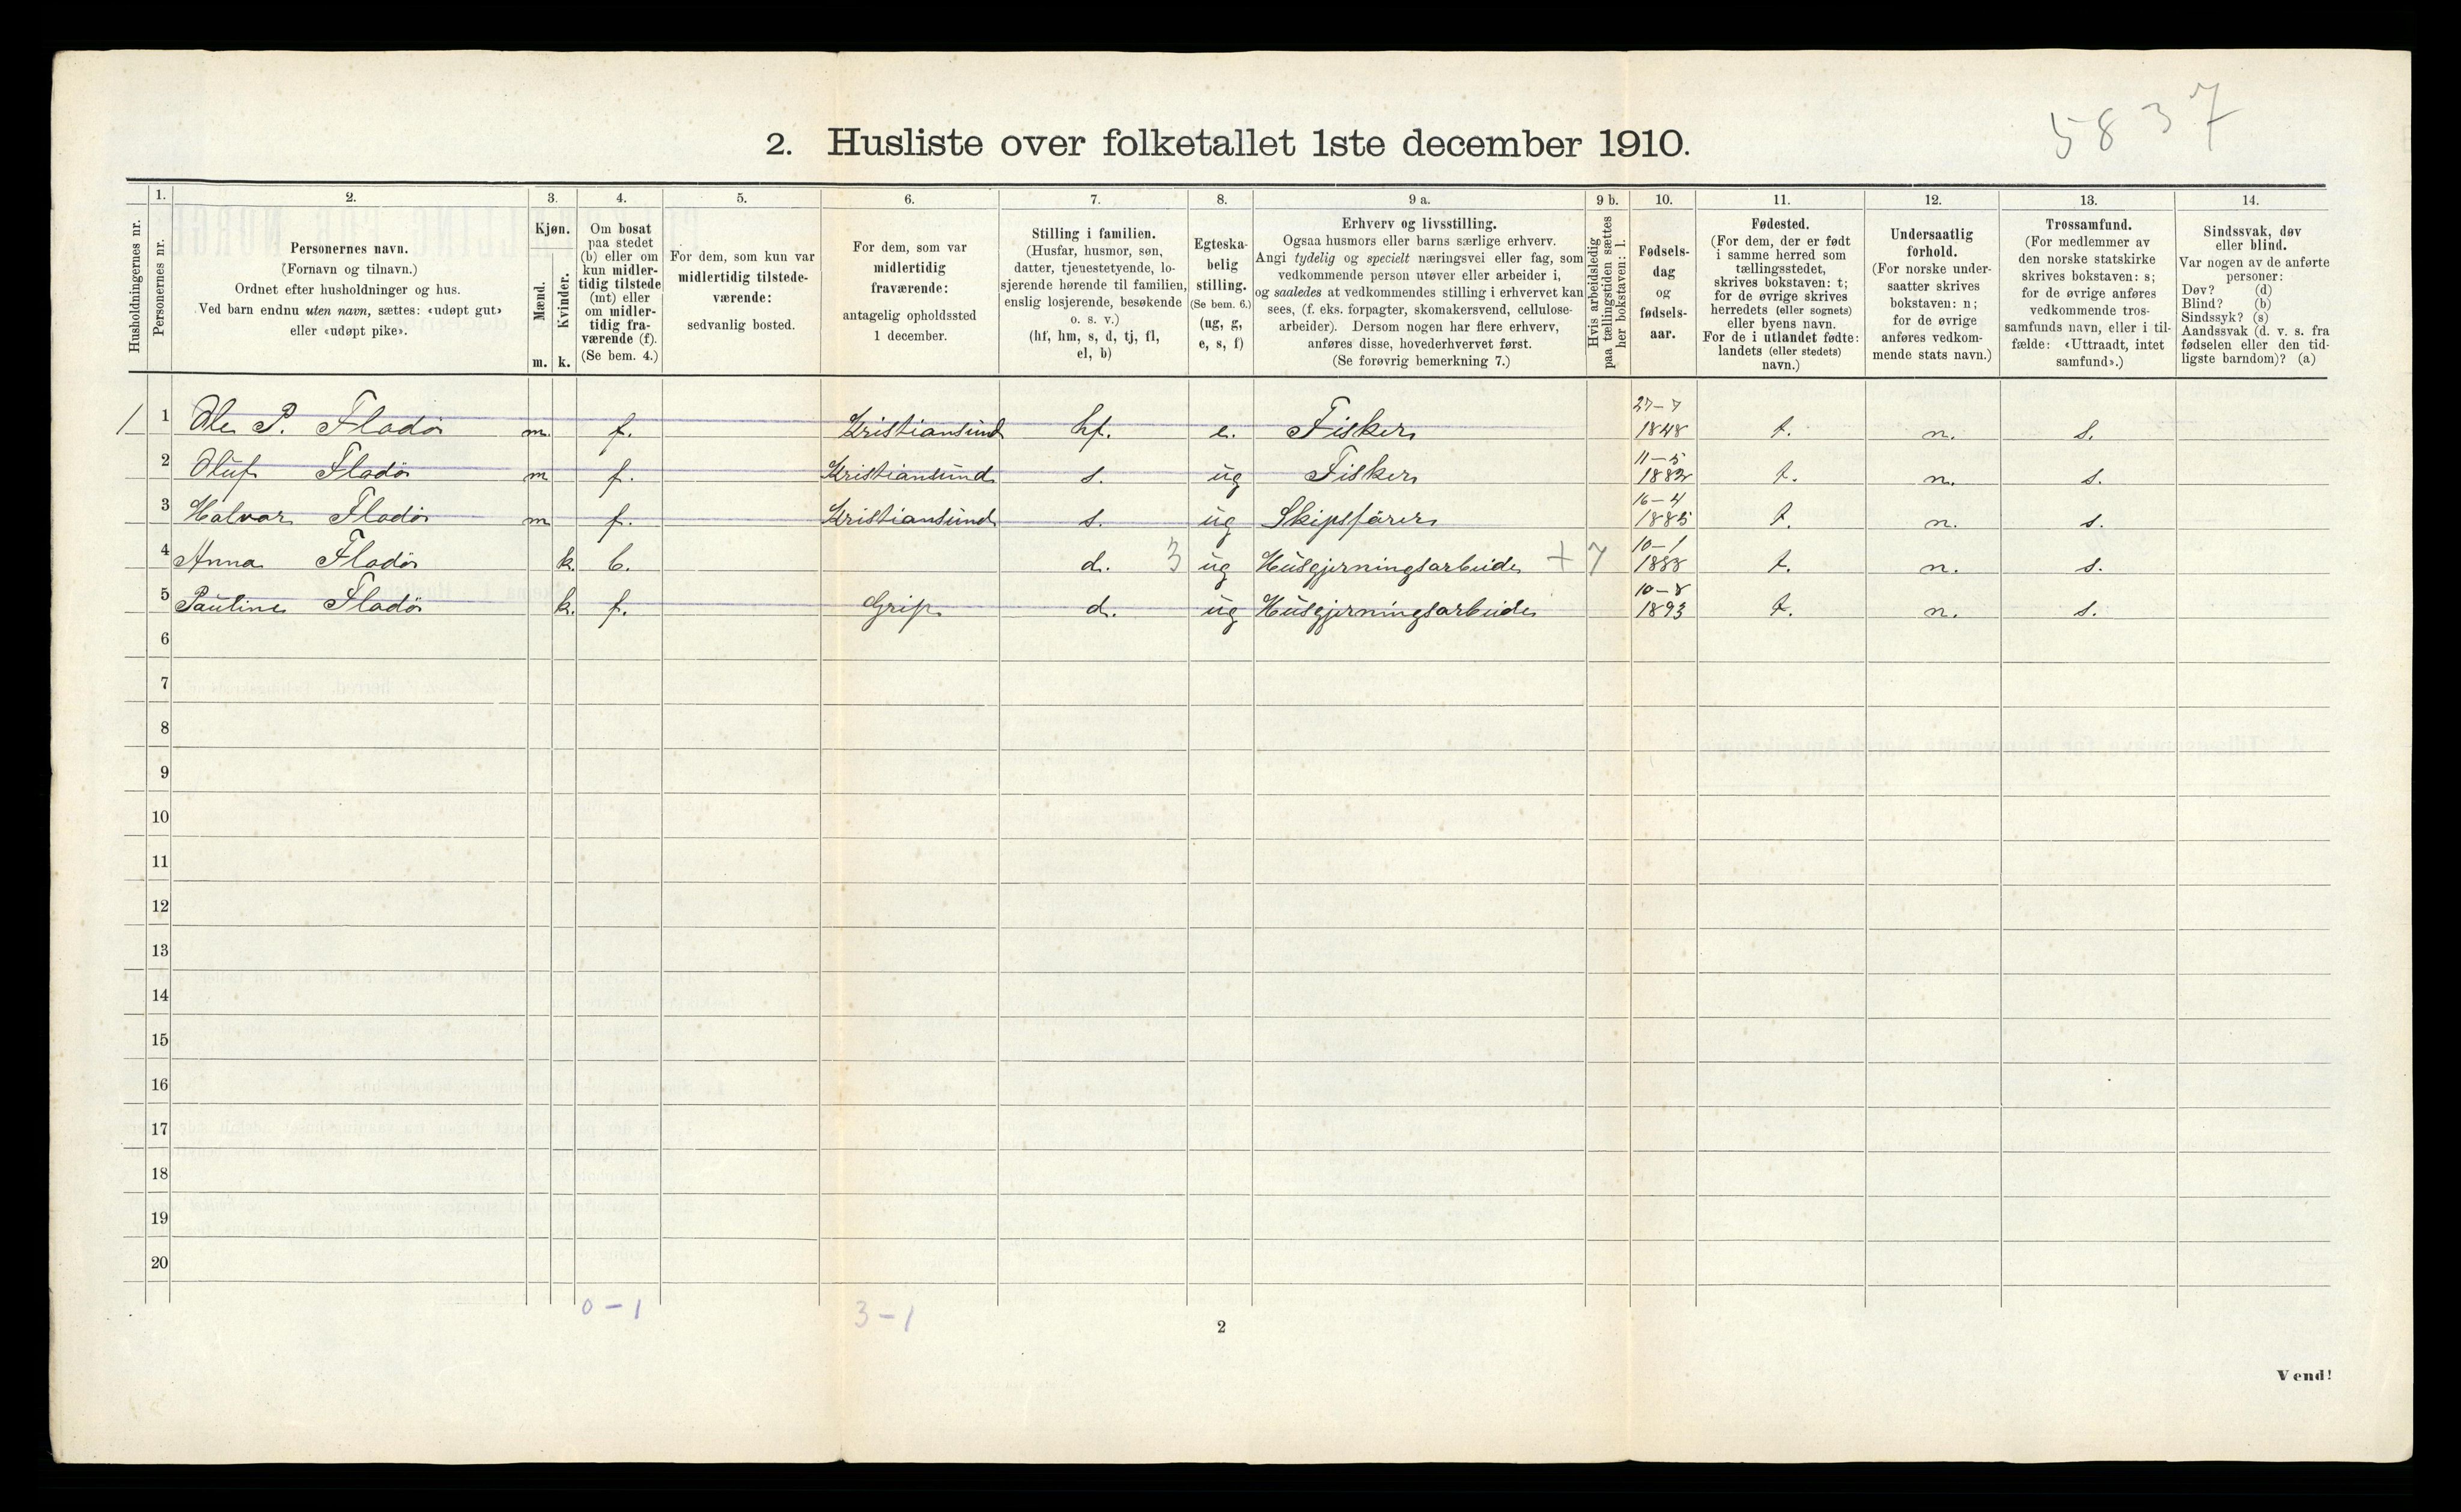 5837
2. Husliste over folketallet 1ste december 1910.
Husholdningernes nr.
1.
Personernes nr.
2.
Personernes navn.
(Fornavn og tilnavn.)
Ordnet efter husholdninger og hus.
Ved barn endnu uten navn, sættes: «udøpt gut»
eller «udøpt pike».
3.
Kjøn.
Mænd.
Kvinder.
m. k.
4.
Om bosat
paa stedet
(b) eller om
kun midler-
tidig tilstede
(mt) eller
om midler-
tidig fra-
værende (f).
(Se bem. 4.)
5.
For dem, som kun var
midlertidig tilstede-
værende:
sedvanlig bosted.
6.
For dem, som var
midlertidig
fraværende:
antagelig opholdssted
1 december.
7.
Stilling i familien.
(Husfar, husmor, søn,
datter, tjenestetyende, lo-
sjerende hørende til familien,
enslig losjerende, besøkende
o. s. v.)
(hf, hm, s, d, tj, fl,
el, b)
8.
Egteska-
belig
stilling.
(Se bem. 6.)
(ug, g,
e, s, f)
9 a.
Erhverv og livsstilling.
Ogsaa husmors eller barns særlige erhverv.
Angi tydelig og specielt næringsvei eller fag, som
vedkommende person utøver eller arbeider i,
og saaledes at vedkommendes stilling i erhvervet kan
sees, (f. eks. forpagter, skomakersvend, cellulose-
arbeider). Dersom nogen har flere erhverv,
anføres disse, hovederhvervet først.
(Se forøvrig bemerkning 7.)
9 b.
Hvis arbeidsledig
paa tællingstiden sættes
her bokstaven: l.
10.
Fødsels-
dag
og
fødsels-
aar.
11.
Fødested.
(For dem, der er født
i samme herred som
tællingsstedet,
skrives bokstaven: t;
for de øvrige skrives
herredets (eller sognets)
eller byens navn.
For de i utlandet fødte:
landets (eller stedets)
navn.)
12.
Undersaatlig
forhold.
(For norske under-
saatter skrives
bokstaven: n;
for de øvrige
anføres vedkom-
mende stats navn.)
13.
Trossamfund.
(For medlemmer av
den norske statskirke
skrives bokstaven: s;
for de øvrige anføres
vedkommende tros-
samfunds navn, eller i til-
fælde: «Uttraadt, intet
samfund».)
14.
Sindssvak, døv
eller blind.
Var nogen av de anførte
personer:
Døv? (d)
Blind? (b)
Sindssyk? (s)
Aandssvak (d. v. s. fra
fødselen eller den tid-
ligste barndom)? (a)
1 1 Ole P. Fladø m. f. Kristiansund hf. e. Fisker 27-7 1848 t. n. s.
2 Oluf Fladø m f. Kristiansund s. ug Fisker 11-5 1882 t. n. s.
3 Halvar Fladø m f. Kristiansund s. ug Skipsfører 16-4 1885 t. n. s.
4 Anna Fladø k. b. d. 3 ug Husgjerningsarbeide + 7 10-1 1888 t. n. s.
5 Pauline Fladø k. f. Grip d. ug Husgjerningsarbeide 10-8 1893 t. n. s.
6
7
8
9
10
11
12
13
14
15
16
17
18
19
20
0-1 3-1
2
Vend!